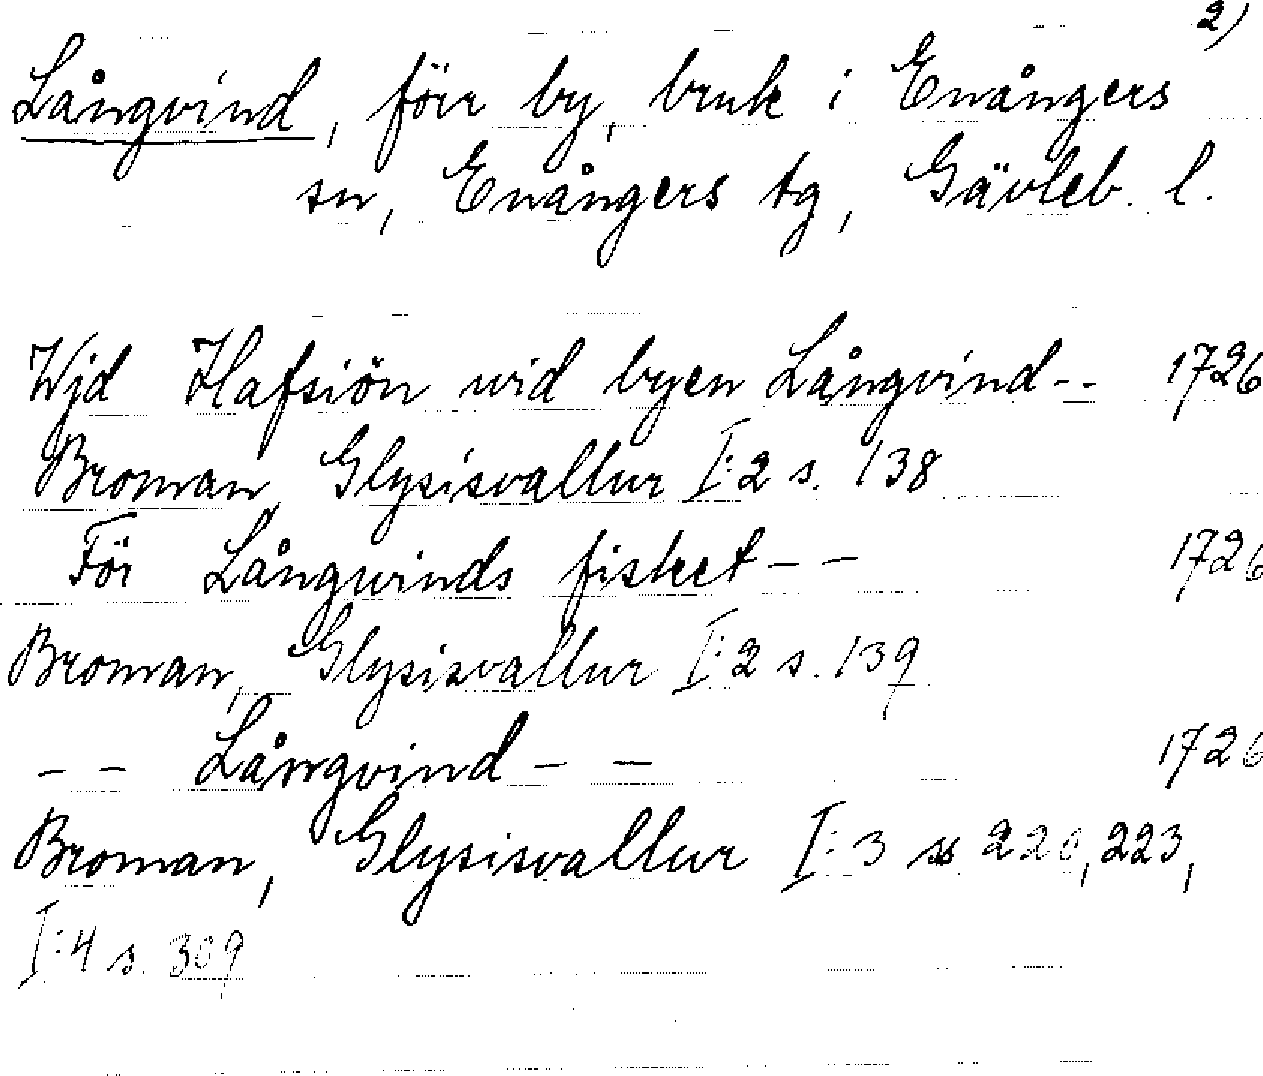 2)
Långvind, förr by, bruk i Enångers
sn, Enångers tg, Gävleb. l.
Wjd Hafsiön wid byen Långvind-- 1726
Broman, Glysisvallur I:2 s. 138
För Långwinds fisket -- 1726
Broman, Glysisvallur I:2 s. 139
-- Långvind -- 1726
Broman, Glysisvallur I:3 ss 220, 223,
I:4 s. 309